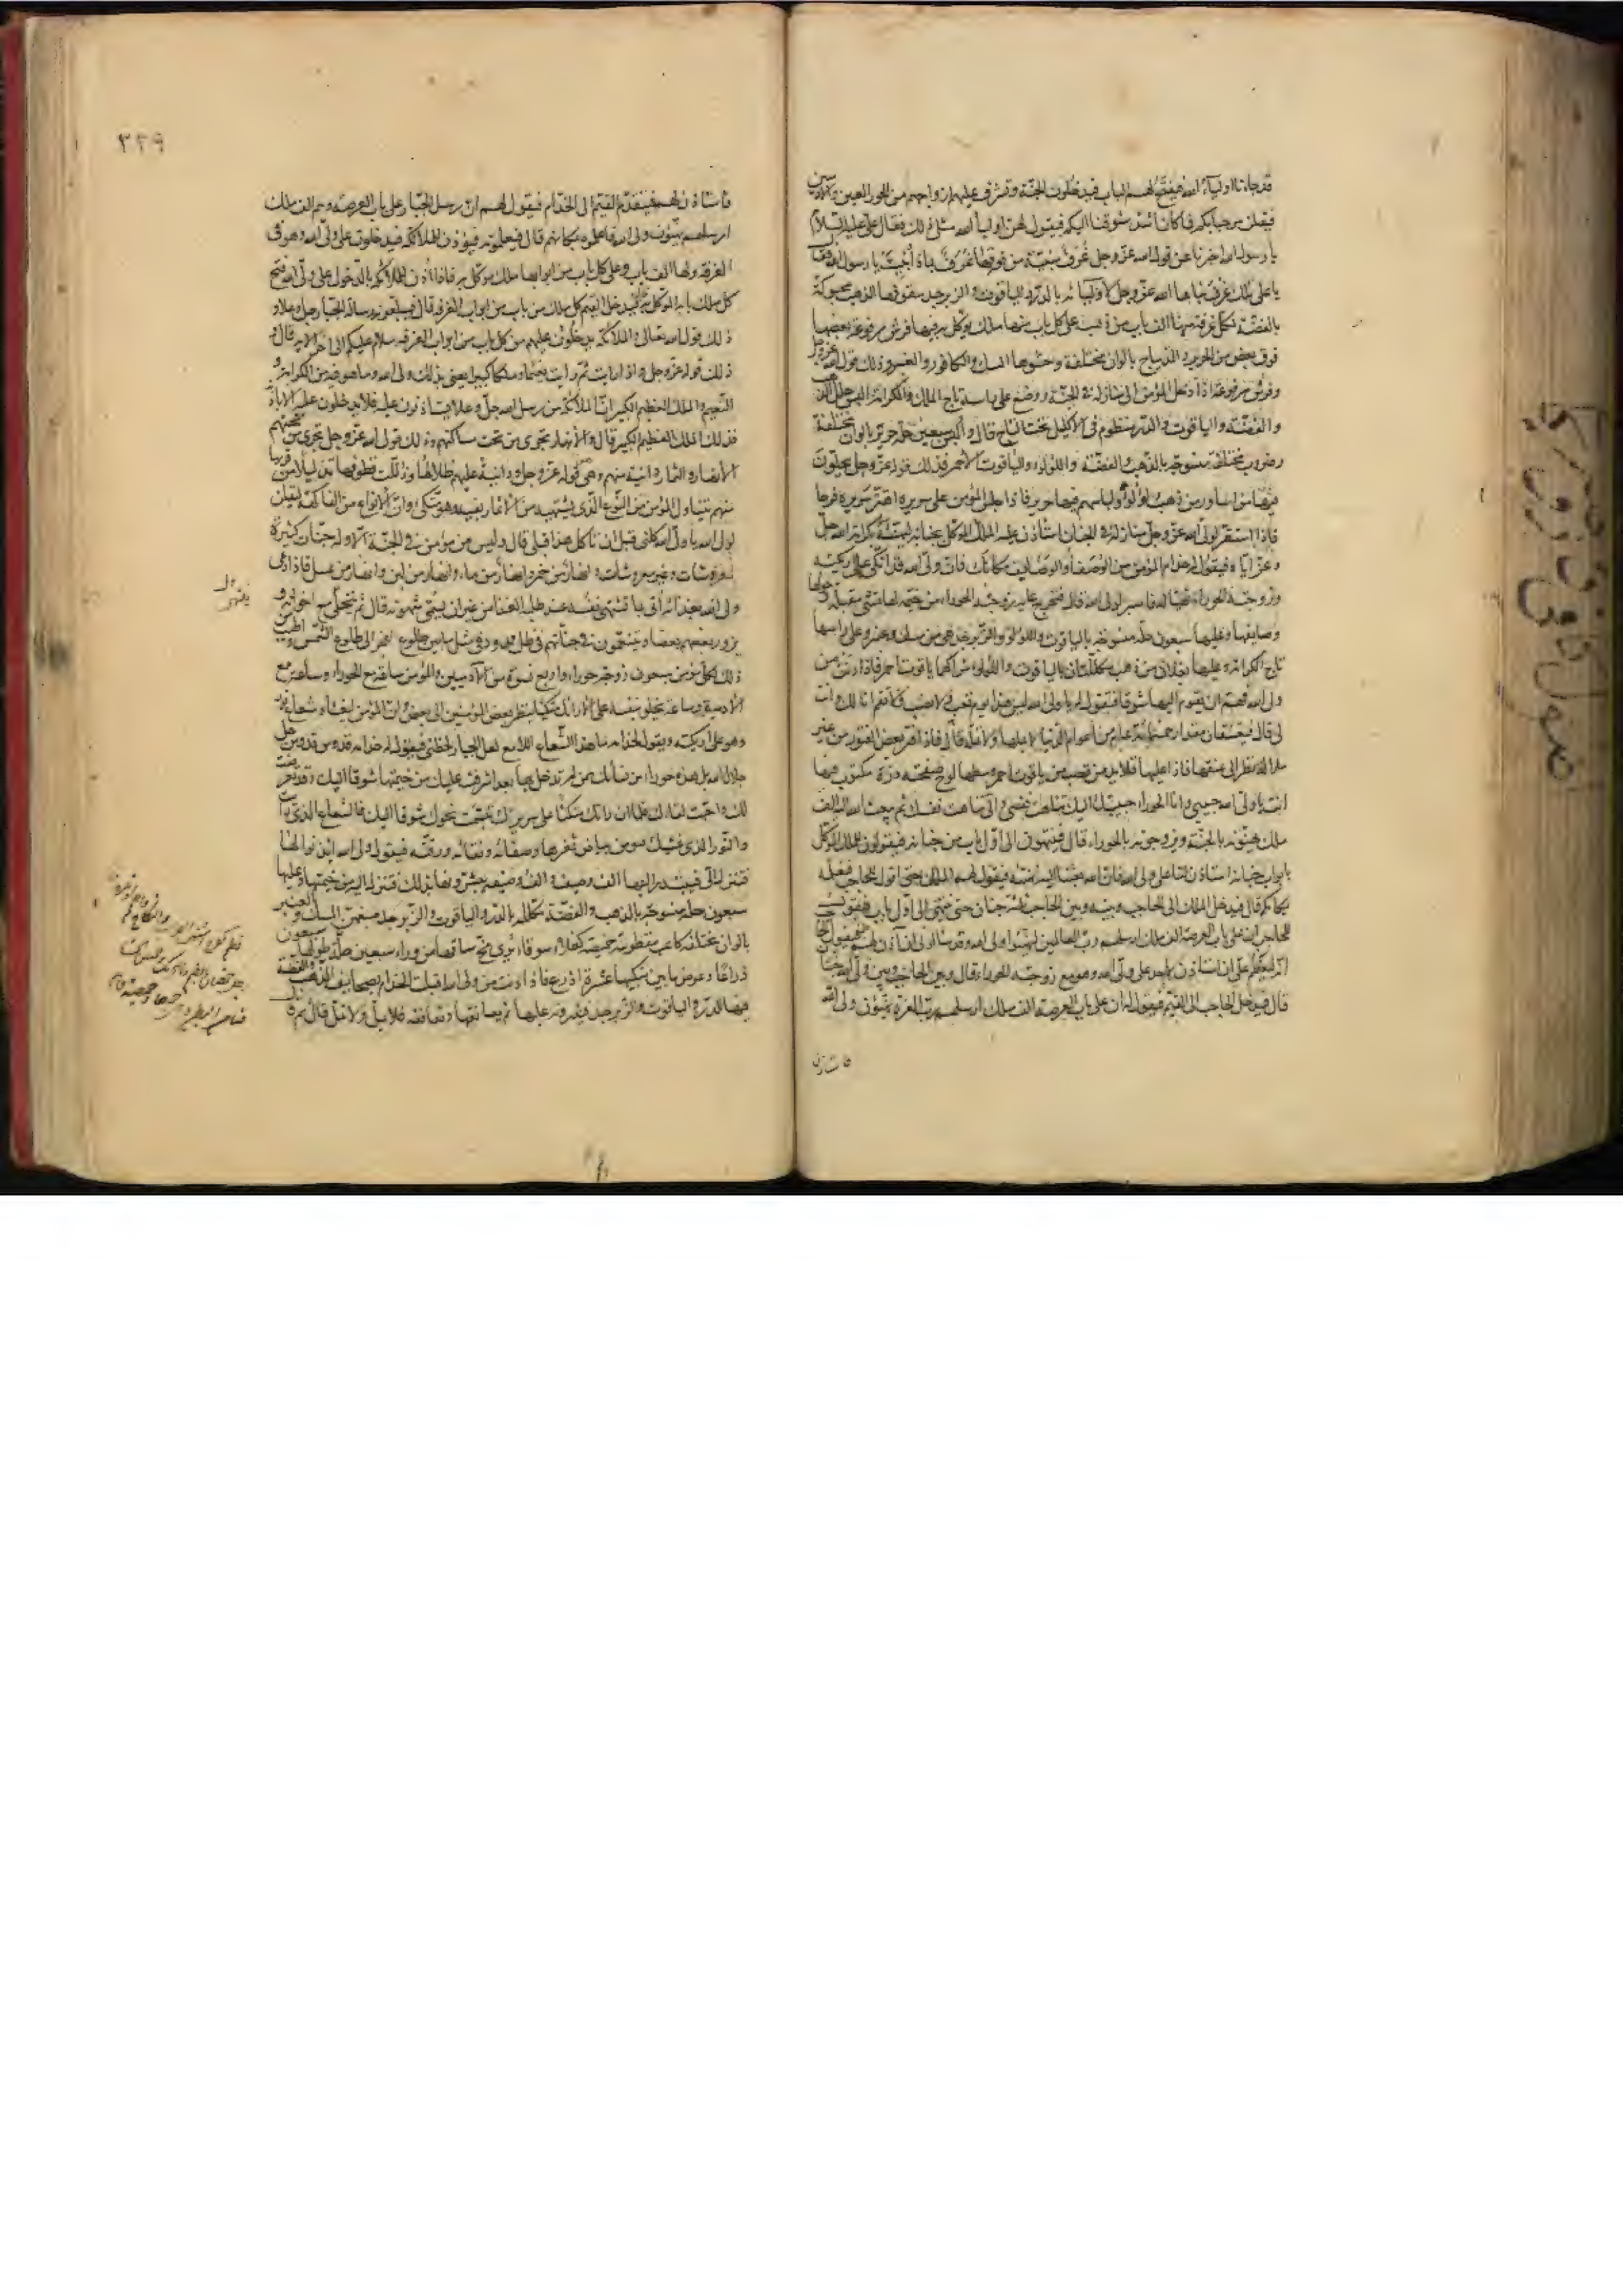 قد جاءنا اولياء الله فيفتح لهم الباب فيدخلون الجنة وتشرف عليهم ازواجهم من الحور العين والآدميين
فيقلن مرحبا بكم فما كان اشد شوقنا اليكم فيقول لهن اولياء الله مثل ذلك فقال علي عليه السلام
يا رسول الله اخبرنا عن قول الله عز وجل غرف مبنية من فوقها غرف بماذا بنيت يا رسول الله فقال
يا علي تلك غرف بناها الله عز وجل لاوليائه بالدر والياقوت والزبرجد سقوفها الذهب محبوكة
بالفضة لكل غرفة منها الف باب من ذهب على كل باب منها ملك موكل به فيها فرش مرفوعة بعضها
فوق بعض من الحرير والديباج بالوان مختلفة وحشوها المسك والكافور والعنبر وذلك قول الله عز وجل
وفرش مرفوعة اذا ادخل المؤمن الى منازله في الجنة ووضع على راسه تاج الملك والكرامة البس حلل الذهب
والفضة والياقوت والدر منظوم في الاكليل تحت التاج قال والبس سبعين حلة حرير بالوان مختلفة
وضروب مختلفة منسوجة بالذهب والفضة واللؤلؤ والياقوت الاحمر فذلك قوله عز وجل يحلون
فيها من اساور من ذهب ولؤلؤا ولباسهم فيها حرير فاذا جلس المؤمن على سريره اهتز سريره فرحا
فاذا استقر لولي الله عز وجل منازله في الجنان استأذن عليه الملك الموكل بجنانه ليهنئه بكرامة الله عز وجل
اياه فيقول له خدام المؤمن من الوصفاء والوصائف مكانك فان ولي الله قد اتكى على اريكته
وزوجته الحوراء تهيأ له فاصبر لولي الله قال فتخرج عليه زوجته الحوراء من خيمة لها تمشي مقبلة وحولها
وصايفها وعليها سبعون حلة منسوجة بالياقوت واللؤلؤ والزبرجد هي من مسك وعنبر وعلى راسها
تاج الكرامة وعليها نعلان من ذهب مكللتان بالياقوت واللؤلؤ شراكهما ياقوت احمر فاذا دنت من
ولي الله فهم ان يقوم اليها شوقا فتقول له يا ولي الله ليس هذا يوم تعب ولا نصب فلا تقم انا لك وانت
لي قال فيعتنقان مقدار خمسمائة عام من اعوام الدنيا لا يملها ولا تمله قال فاذا فتر بعض الفتور من غير
ملالة نظر الى عنقها فاذا عليها قلايد من قصب من ياقوت احمر وسطها لوح صفحته درة مكتوب فيها
انت يا ولي الله حبيبي وانا الحوراء حبيبتك اليك تناهت نفسي والي تناهت نفسك ثم يبعث الله اليه الف
ملك يهنئونه بالجنة ويزوجونه بالحوراء قال فينتهون الى اول باب من جنانه فيقولون للملك الموكل
بابواب جنانه استأذن لنا على ولي الله فان الله بعثنا اليه نهنئه فيقول لهم الملك حتى اقول للحاجب فيعلمه
بمكانكم قال فيدخل الملك الى الحاجب وبينه وبين الحاجب ثلثة جنان حتى ينتهي الى اول باب فيقول
للحاجب ان على باب العرصة الف ملك ارسلهم رب العالمين ليهنئوا ولي الله وقد سالوني ان آذن لهم عليه فيقول الحاجب
انه ليعظم علي ان استأذن لاحد على ولي الله وهو مع زوجته الحوراء قال وبين الحاجب وبين ولي الله جنتان
قال فيدخل الحاجب الى القيم فيقول له ان على باب العرصة الف ملك ارسلهم رب العزة يهنئون ولي الله
فاستأذن
٣٢٩
فاستأذن لهم فيتقدم القيم الى الخدام فيقول لهم ان رسل الجبار على باب العرصة وهم الف ملك
ارسلهم يهنئون ولي الله فاعلموه بمكانهم قال فيعلمونه فيؤذن للملائكة فيدخلون على ولي الله وهو في
الغرفة ولها الف باب وعلى كل باب من ابوابها ملك موكل به فاذا اذن للملائكة بالدخول على ولي الله فتح
كل ملك بابه الموكل به قال فيدخل القيم كل ملك من باب من ابواب الغرفة قال فيبلغونه رسالة الجبار جل وعلا و
ذلك قول الله تعالى والملائكة يدخلون عليهم من كل باب من ابواب الغرفة سلام عليكم الى اخر الاية قال و
ذلك قوله عز وجل واذا رايت ثم رايت نعيما وملكا كبيرا يعني بذلك ولي الله وما هو فيه من الكرامة و
النعيم والملك العظيم الكبير ان الملائكة من رسل الله جل وعلا يستأذنون عليه فلا يدخلون عليه الا باذنه
فذلك الملك العظيم الكبير قال والانهار تجري من تحت مساكنهم وذلك قول الله عز وجل تجري من تحتهم
الانهار والثمار دانية منهم وهو قوله عز وجل ودانية عليهم ظلالها وذللت قطوفها تذليلا من قربها
منهم يتناول المؤمن من النوع الذي يشتهيه من الثمار بفيه وهو متكئ وان الانواع من الفاكهة ليقلن
لولي الله يا ولي الله كلني قبل ان تاكل هذا قبلي قال وليس من مؤمن في الجنة الا وله جنان كثيرة
معروشات وغير معروشات وانهار من خمر وانهار من ماء وانهار من لبن وانهار من عسل فاذا دعى
ولي الله بغذائه اتي بما تشتهي نفسه عند طلبه الغذاء من غير ان يسمي شهوته قال ثم يتخلى مع اخوانه و
يزور بعضهم بعضا ويتنعمون في جناتهم في ظل ممدود في مثل ما بين طلوع الفجر الى طلوع الشمس واطيب من
ذلك لكل مؤمن سبعون زوجة حوراء واربع نسوة من الآدميين والمؤمن ساعة مع الحوراء وساعة مع
الآدمية وساعة يخلو بنفسه على الارائك متكئا ينظر بعض المؤمنين الى بعض وان المؤمن ليغشاه شعاع نور
وهو على اريكته ويقول لخدامه ما هذا الشعاع اللامع لعل الجبار لحظني فيقول له خدامه قدوس قدوس جل
جلال الله بل هذه حوراء من نسائك ممن لم تدخل بها بعد اشرفت عليك من خيمتها شوقا اليك وقد تعرضت
لك واحبت لقاءك فلما ان راتك متكئا على سريرك تبسمت نحوك شوقا اليك فالشعاع الذي رايت
والنور الذي غشيك هو من بياض ثغرها وصفائه ونقائه ورقته فيقول ولي الله ائذنوا لها
فتنزل الي فيبتدر اليها الف وصيف والف وصيفة يبشرونها بذلك فتنزل اليه من خيمتها وعليها
سبعون حلة منسوجة بالذهب والفضة مكللة بالدر والياقوت والزبرجد صبغهن المسك والعنبر
بالوان مختلفة كاعب مقطومة خميصة كفلاء سوقاء يرى مخ ساقها من وراء سبعين حلة طولها سبعون
ذراعا وعرض ما بين منكبيها عشرة اذرع فاذا دنت من ولي الله اقبلت الخدام بصحايف الذهب والفضة
فيها الدر والياقوت والزبرجد فينثرونه عليها ثم يعانقها وتعانقه فلا يمل ولا تمل قال ثم قال